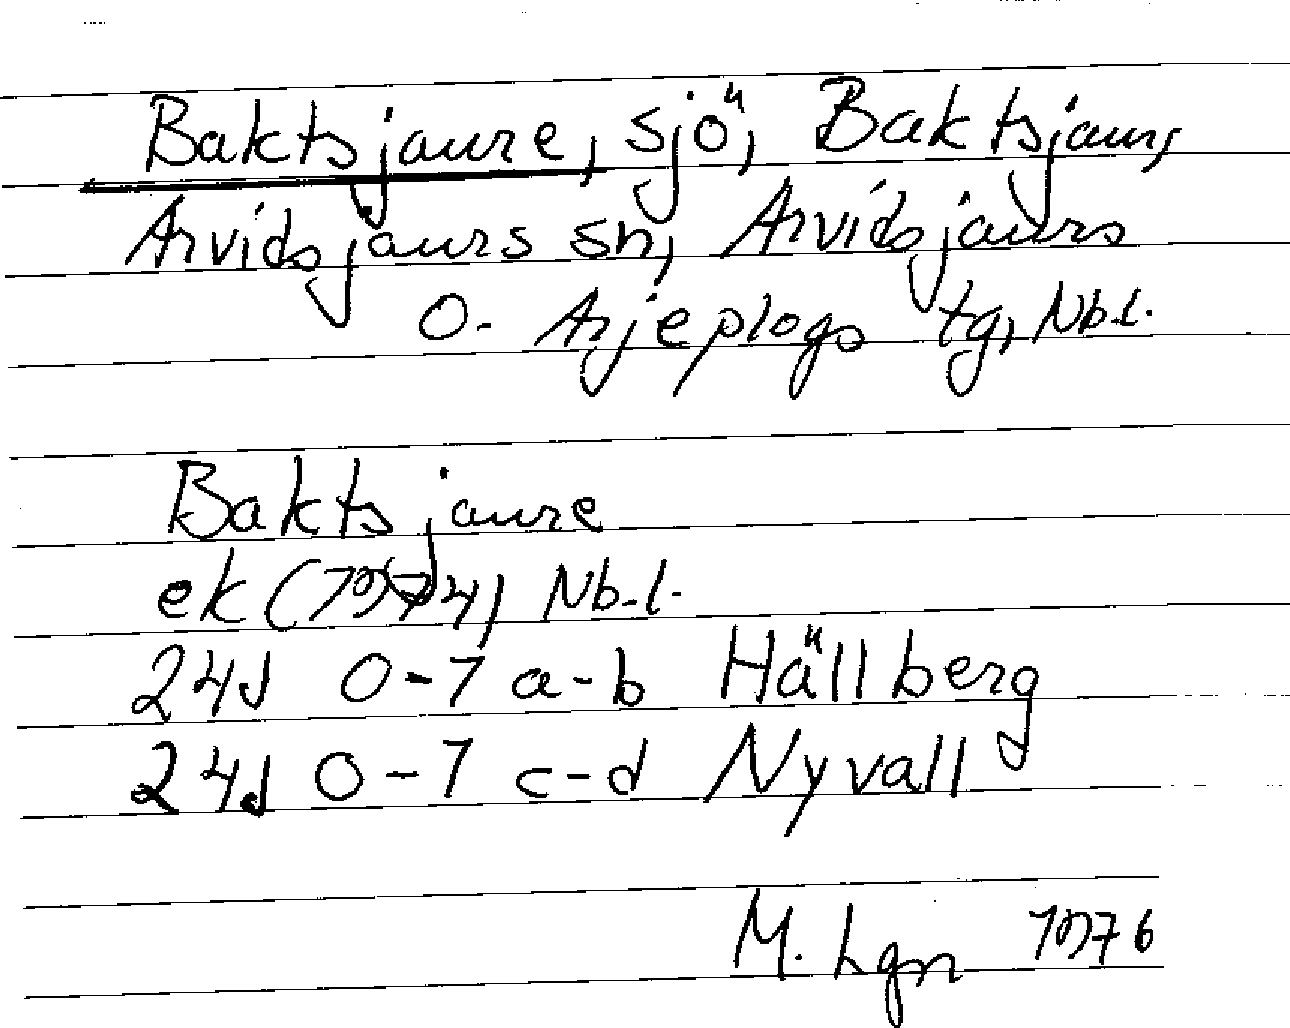 Baktsjaure, sjö, Baktsjaur,
Arvidsjaurs sn, Arvidsjaurs
o. Arjeplogs tg, Nb.l.
Baktsjaure
ek (1974) Nb.l.
24J 0-1 a-b Hällberg
24J 0-1 c-d Nyvall
M. Lgn 1976